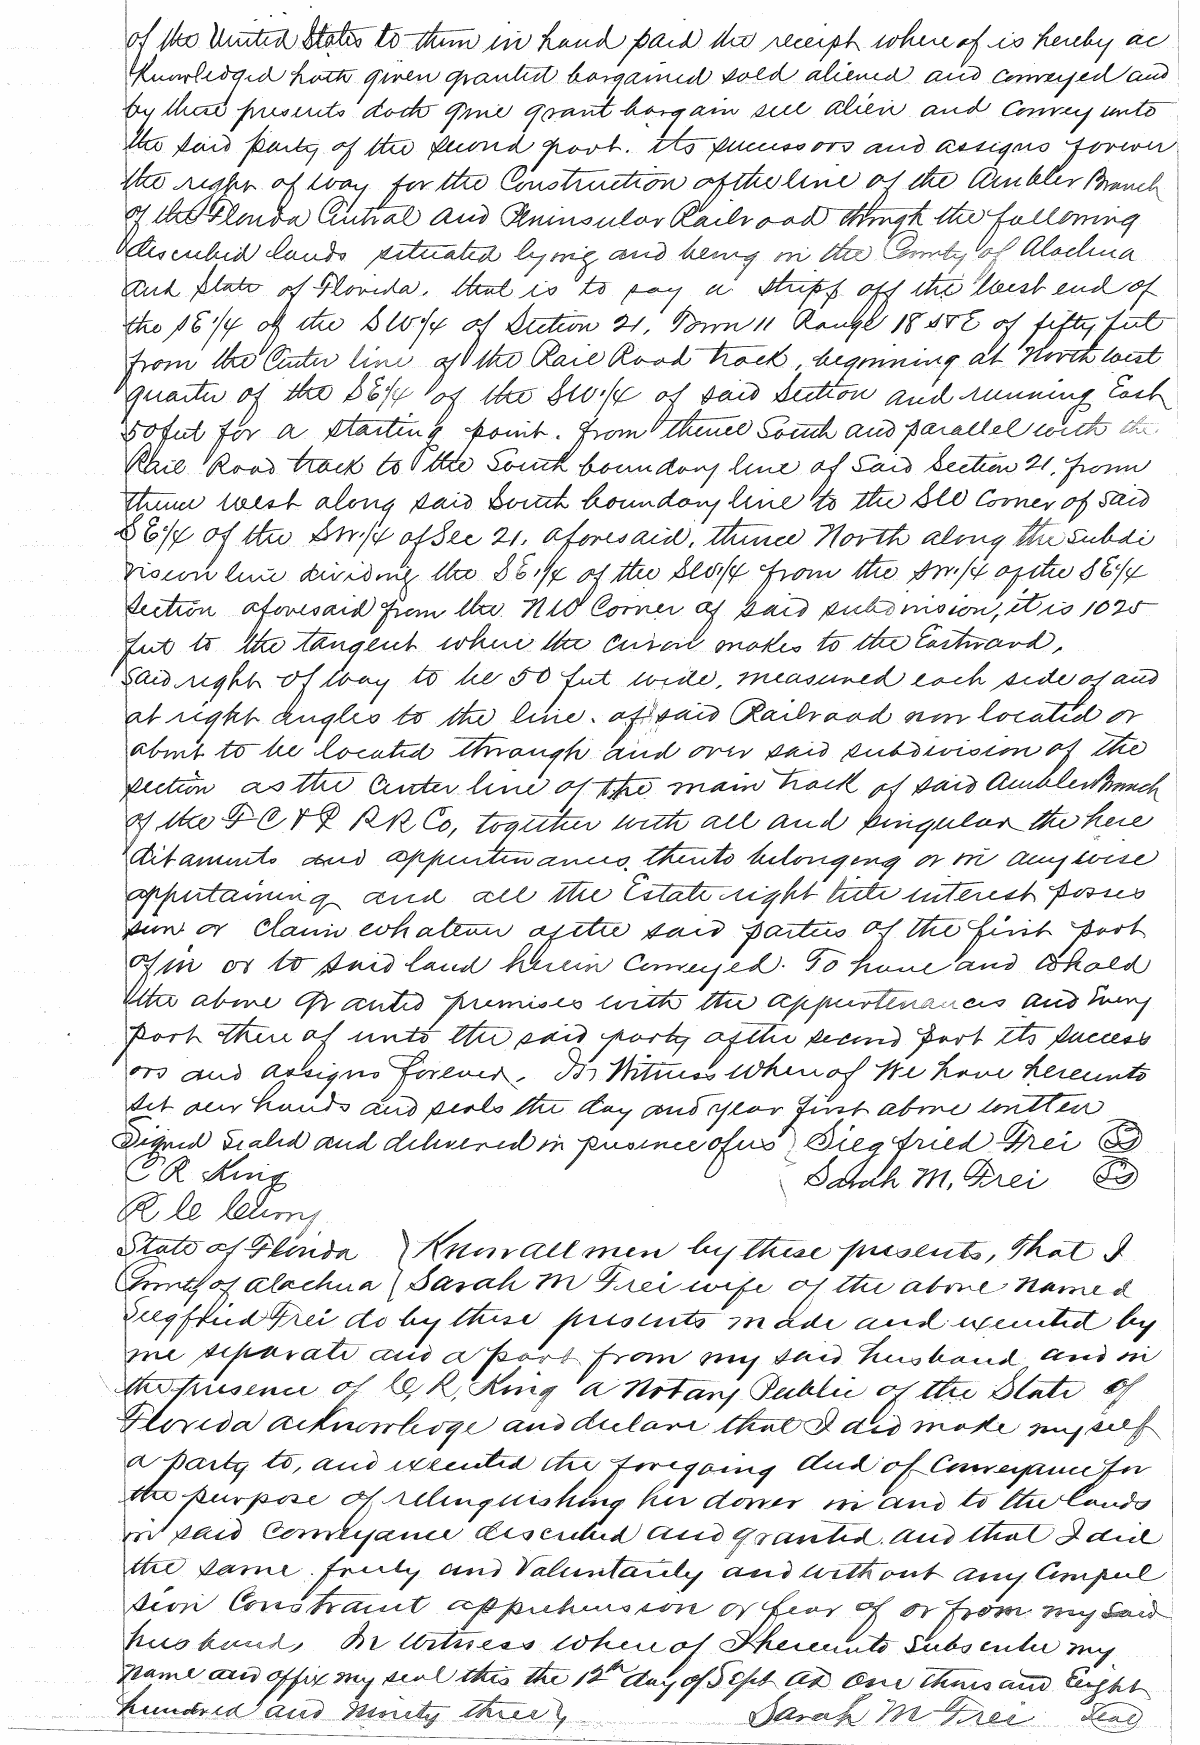 of the United States to them in hand paid the receipt where of is hereby ac
knowledged hath given granted bargained sold aliened and conveyed and
by these presents doth give grant bargain sell alien and convey unto
the said party of the second part. its successors and assigns forever
the right of way for the Construction of the line of the Ambler Branch
of the Florida Central and Peninsular Railroad through the following
described lands situated lying and being in the County of Alachua
and State of Florida. that is to say a stripp off the West end of
the SE 1/4 of the SW 1/4 of Section 21, Town 11 Range 18 S & E of fifty feet
from the Center line of the Rail Road track, beginning at North west
quarter of the SE 1/4 of the SW 1/4 of said Section and running East
50 feet for a starting point. from thence South and parallel with the
Rail Road track to the South boundary line of Said Section 21, from
thence west along said South boundary line to the SW Corner of said
SE 1/4 of the SW 1/4 of Sec 21. aforesaid, thence North along the subdi
vision line dividing the SE 1/4 of the SW 1/4 from the SW 1/4 of the SE 1/4
Section aforesaid from the NW Corner of said subdivision, it is 1025
feet to the tangent where the curve makes to the Eastward,
said right of way to be 50 feet wide, measured each side of and
at right angles to the line. of said Railroad now located or
about to be located through and over said subdivision of the
section as the Center line of the main track of said Ambler Branch
of the F C & P R R Co, together with all and singular the here
ditaments and appurtenances thereto belonging or in anywise
appertaining and all the Estate right title interest posses
sion or claim whatever of the said parties of the first part
of in or to said land herein Conveyed. To have and to hold
the above granted premises with the appurtenances and Every
part there of unto the said party of the second part its success
ors and assigns forever. In Witness Whereof We have hereunto
set our hands and seals the day and year first above written
Signed Sealed and delivered in presence of us ) Siegfried Frei LS
C R King Sarah M. Frei LS
R
State of Florida } Know all men by these presents, That I
County of Alachua } Sarah M Frei wife of the above named
Siegfried Frei do by these presents made and executed by
me separate and a part from my said husband and in
the presence of C. R. King a Notary Public of the State of
Florida acknowledge and declare that I did make myself
a party to, and executed the foregoing deed of Conveyance for
the purpose of relinquishing her dower in and to the lands
in said Conveyance described and granted. and that I did
the same freely and Voluntarily and without any Compul
sion Constraint apprehension or fear of or from my said
husband, In witness where of I hereunto Subscribe my
name and affix my seal this the 12th day of Sept AD One thousand Eight
hundred and Ninety three, Sarah M Frei Seal